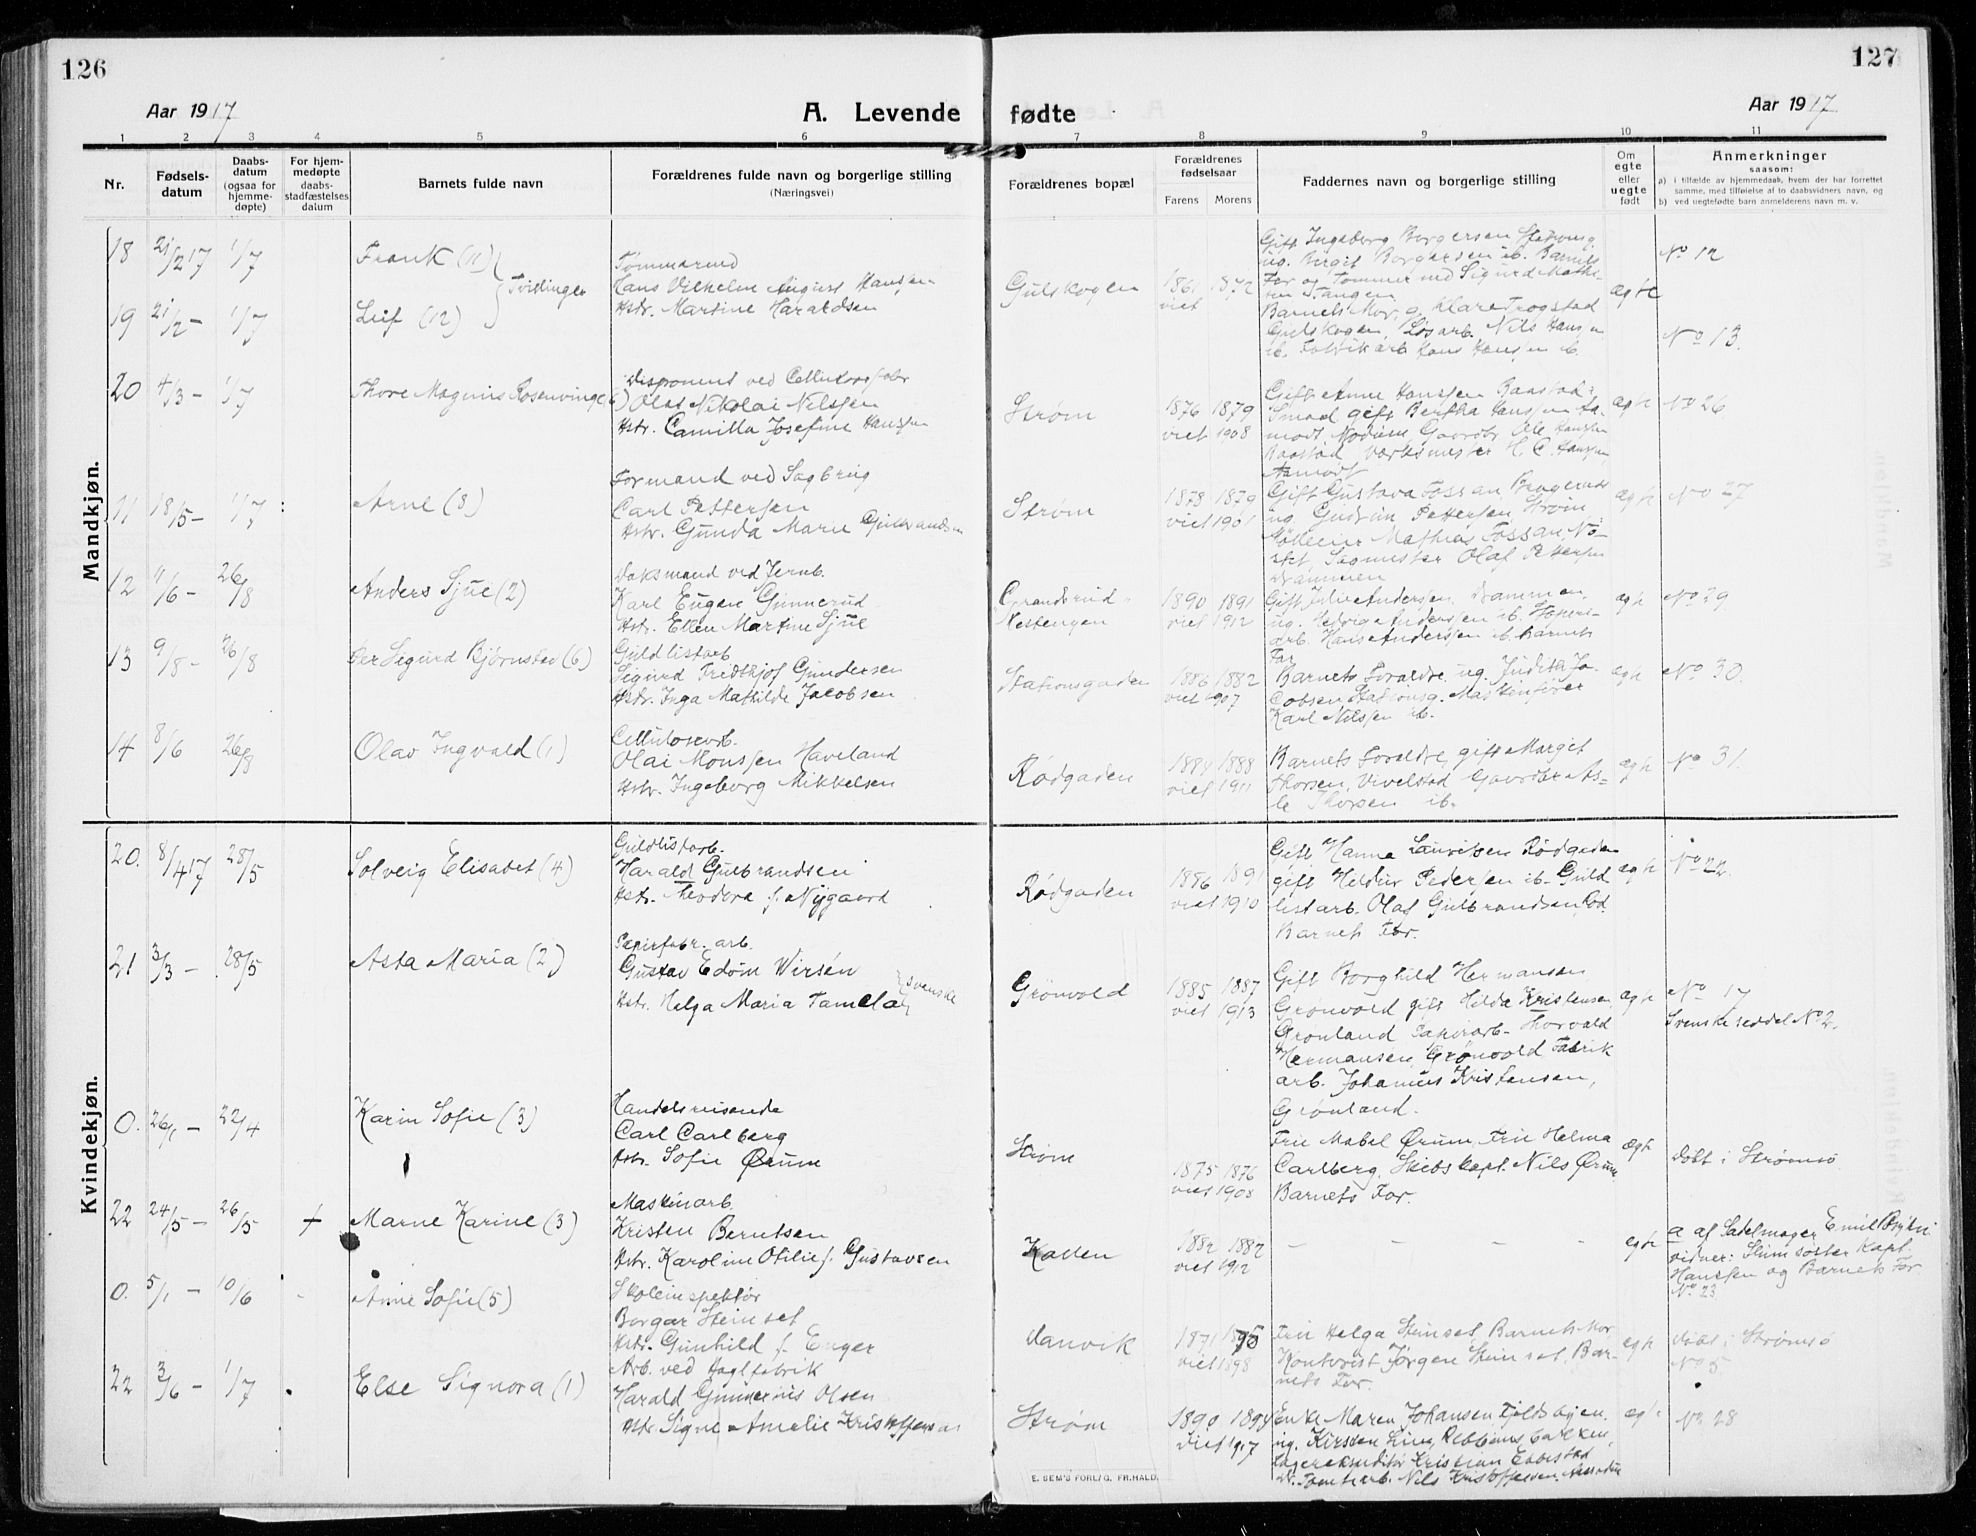 126
127
Aar 1917
A. Levende
fødte
Aar 1917
1 2 3 4 5 6 7 8 9 10 11
Nr.
Fødsels-
datum
Daabs-
datum
(ogsaa for
hjemme-
døpte)
For hjem-
medøpte
daabs-
stadfæstelses
datum
Barnets fulde navn
Forældrenes fulde navn og borgerlige stilling
(Næringsvei)
Forældrenes bopæl
Forældrenes
fødselsaar
Farens Morens
Faddernes navn og borgerlige stilling
Om
egte
eller
uegte
født
Anmerkninger
saasom:
a) i tilfælde av hjemmedaab, hvem der har forrettet
samme, med tilføielse af to daabsvidners navn, og
b) ved uegtefødte barn anmelderens navn m. v.
Mandkjøn.
18 21/2 17 1/7 Frank (11)
Tvillinger
19 21/2 - 1/7 Leif (12)
Tømmermd
Hans Vilhelm August Hansen
Hstr. Martine Haraldsen
Gulskogen
1861 1872
viet
Gift Ingeborg Borgersen Stationsg
ug. Birgit Borgersen ib. Barnets
Far og Tømmermd Sigurd Mathi-
sen Tangen
Barnets Mor, g. Klare Trogstad
Gulskogen, Løsarb. Nils Hansen
ib. Fabrikarb Hans Hansen ib.
ægte
No 12
No 13.
20 4/3 - 1/7 Thore Magnus Rosenvinge (6)
Disponent ved Cellulosefabr
Olaf Nikolai Nilssen
Hstr. Camilla Josefine Hanssen
Strøm
1876 1879
viet 1908
Gift Anne Hanssen Baastad i
Smaal gift Bertha Hanssen Aa-
modt, Modum, Gaardbr. Ole Hanssen
Baastad Værksmester H. C. Hanssen,
Aamodt
ægte
No 26
11 18/5 - 1/7 Arne (8)
Formand ved Sagbrug
Carl Pettersen
Hstr. Gunda Marie Gulbrandsen
Strøm
1878 1879
viet 1901
Gift Gustava Fossan, Bragernes
ug. Gudrun Pettersen Strøm
Mølleeier Mathias Fossan, Nø-
stet, Sagmester Olaf Pettersen
Drammen
ægte
No 27
12 11/6 - 26/8 Anders Sjue (2)
Vaksmand ved Jernb.
Karl Eugen Gunnerud
Hstr. Ellen Martine Sjue
Nestengen
1890 1891
viet 1912
Gift Julie Andersen, Dammen,
ug. Hedvig Anderssen ib.
arb. Hans Anderssen ib. Barnets
Far
ægte
No 29
13 9/8 - 26/8 Per Sigurd Bjørnstad (6)
Guldlistarb
Sigurd Fridthjof Gundersen
Hstr. Inga Mathilde Jacobsen
Stationsgaden
1886 1882
viet 1907
Barnets Foraldre, ug. Judith Ja-
cobsen Stationsg. Maskinfører
Karl Nilssen ib.
egte
No 30.
14 8/6 26/8 Olav Ingvald (1)
Cellulosearb.
Olai Monssen Haveland
Hstr. Ingeborg Mikkelsen
Rødgaden
1884 1888
viet 1911
Barnets Foraldre, gift Margit
Thorsen, Vivelstad Gaardbr As-
le Thorsen ib.
ægte
No 31.
Kvindekjøn.
20. 8/4 17 28/5 Solveig Elisabet (4)
Guldlistarb.
Harald Gulbrandsen
Hstr. Theodora f. Nygaard
Rødgaden
1886 1891
viet 1910
Gift Hanna Lauritsen Rødgaden
gift Hildur Pedersen ib. Guld
listarb. Olaf Gulbrandsen, Rød.
Barnets Far.
egte
No 22.
21 3/3 - 28/5 Asta Maria (2)
Papirfabr. arb.
Gustav Edøm Wirsén
Hstr. Helga Maria Tamela
svenske
Grønvold
1885 1887
viet 1913
Gift Borghild Hermansen
Grønvold gift Hilda Kristensen
Grønland Papirarb. Thorvald
Hermansen, Grønvold Fabrik
arb. Johannes Kristensen,
Grønland.
ægte
No 17
Svenskeseddel No 2.
0. 26/1 - 22/4 Karin Sofie (3)
Handelsreisende
Carl Carlberg
Hstr. Sofie Ørum
Strøm
1875 1876
viet 1908
Frie Mabel Ørum, Frie Helma
Carlberg, Skibskapt. Nils Ørum
Barnets Far.
ægte
Døbt i Strømsø
22 24/5 - 26/5 + Marne Karine (3)
Maskinarb.
Kristen Berntsen
Hstr. Karoline Otilie f. Gustavsen
Kallen
1882 1887
viet 1912
- - - -
egte
a af Sadelmager Emil
vidner: Slumsøster Kapt.
Hanssen og Barnets Far
No. 23
0. 5/1 - 10/6 - Anne Sofie (5)
Skoleinspektør
Borgar Steinset
Hstr. Gunhild f. Enger
Danvik
1871 1875
viet 1898
Frie Helga Steinset, Barnets Mor
Kontorist Jørgen Steinset, Bar-
nets Far.
egte
Døbt i Strømsø
No 5
22 3/6 - 1/7 Else Signora (1)
Arb. ved Haglfabrik
Harald Gunnerius Olsen
Hstr. Signe Amelie Kristoffersen
Strøm
1890 1894
Viet 1917
Enke Maren Johansen Fjeldsbyen.
ug. Kirsten Lius,
Lagerekspeditør Kristian Ebbestad
Tomtarb. Nils Kristoffersen
ægte
No 28
E. SEM'S FORL/G. FR.HALD